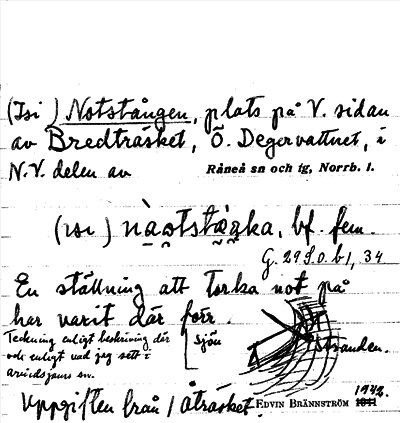 (Isi) Notstången, plats på V. sidan
av Bredträsket, Ö. Degervattnet, i
N.V. delen av Råneå sn och tg, Norrb. l.
bf. fem.
G. 29
34
En ställning att torka not på
har varit där förr.
Teckning enligt beskrivning där
och enligt vad jag sett i
Arvidsjaurs sn.
sjön
stranden.
Uppgiften från Åträsket.
EDVIN BRÄNNSTRÖM 1942.